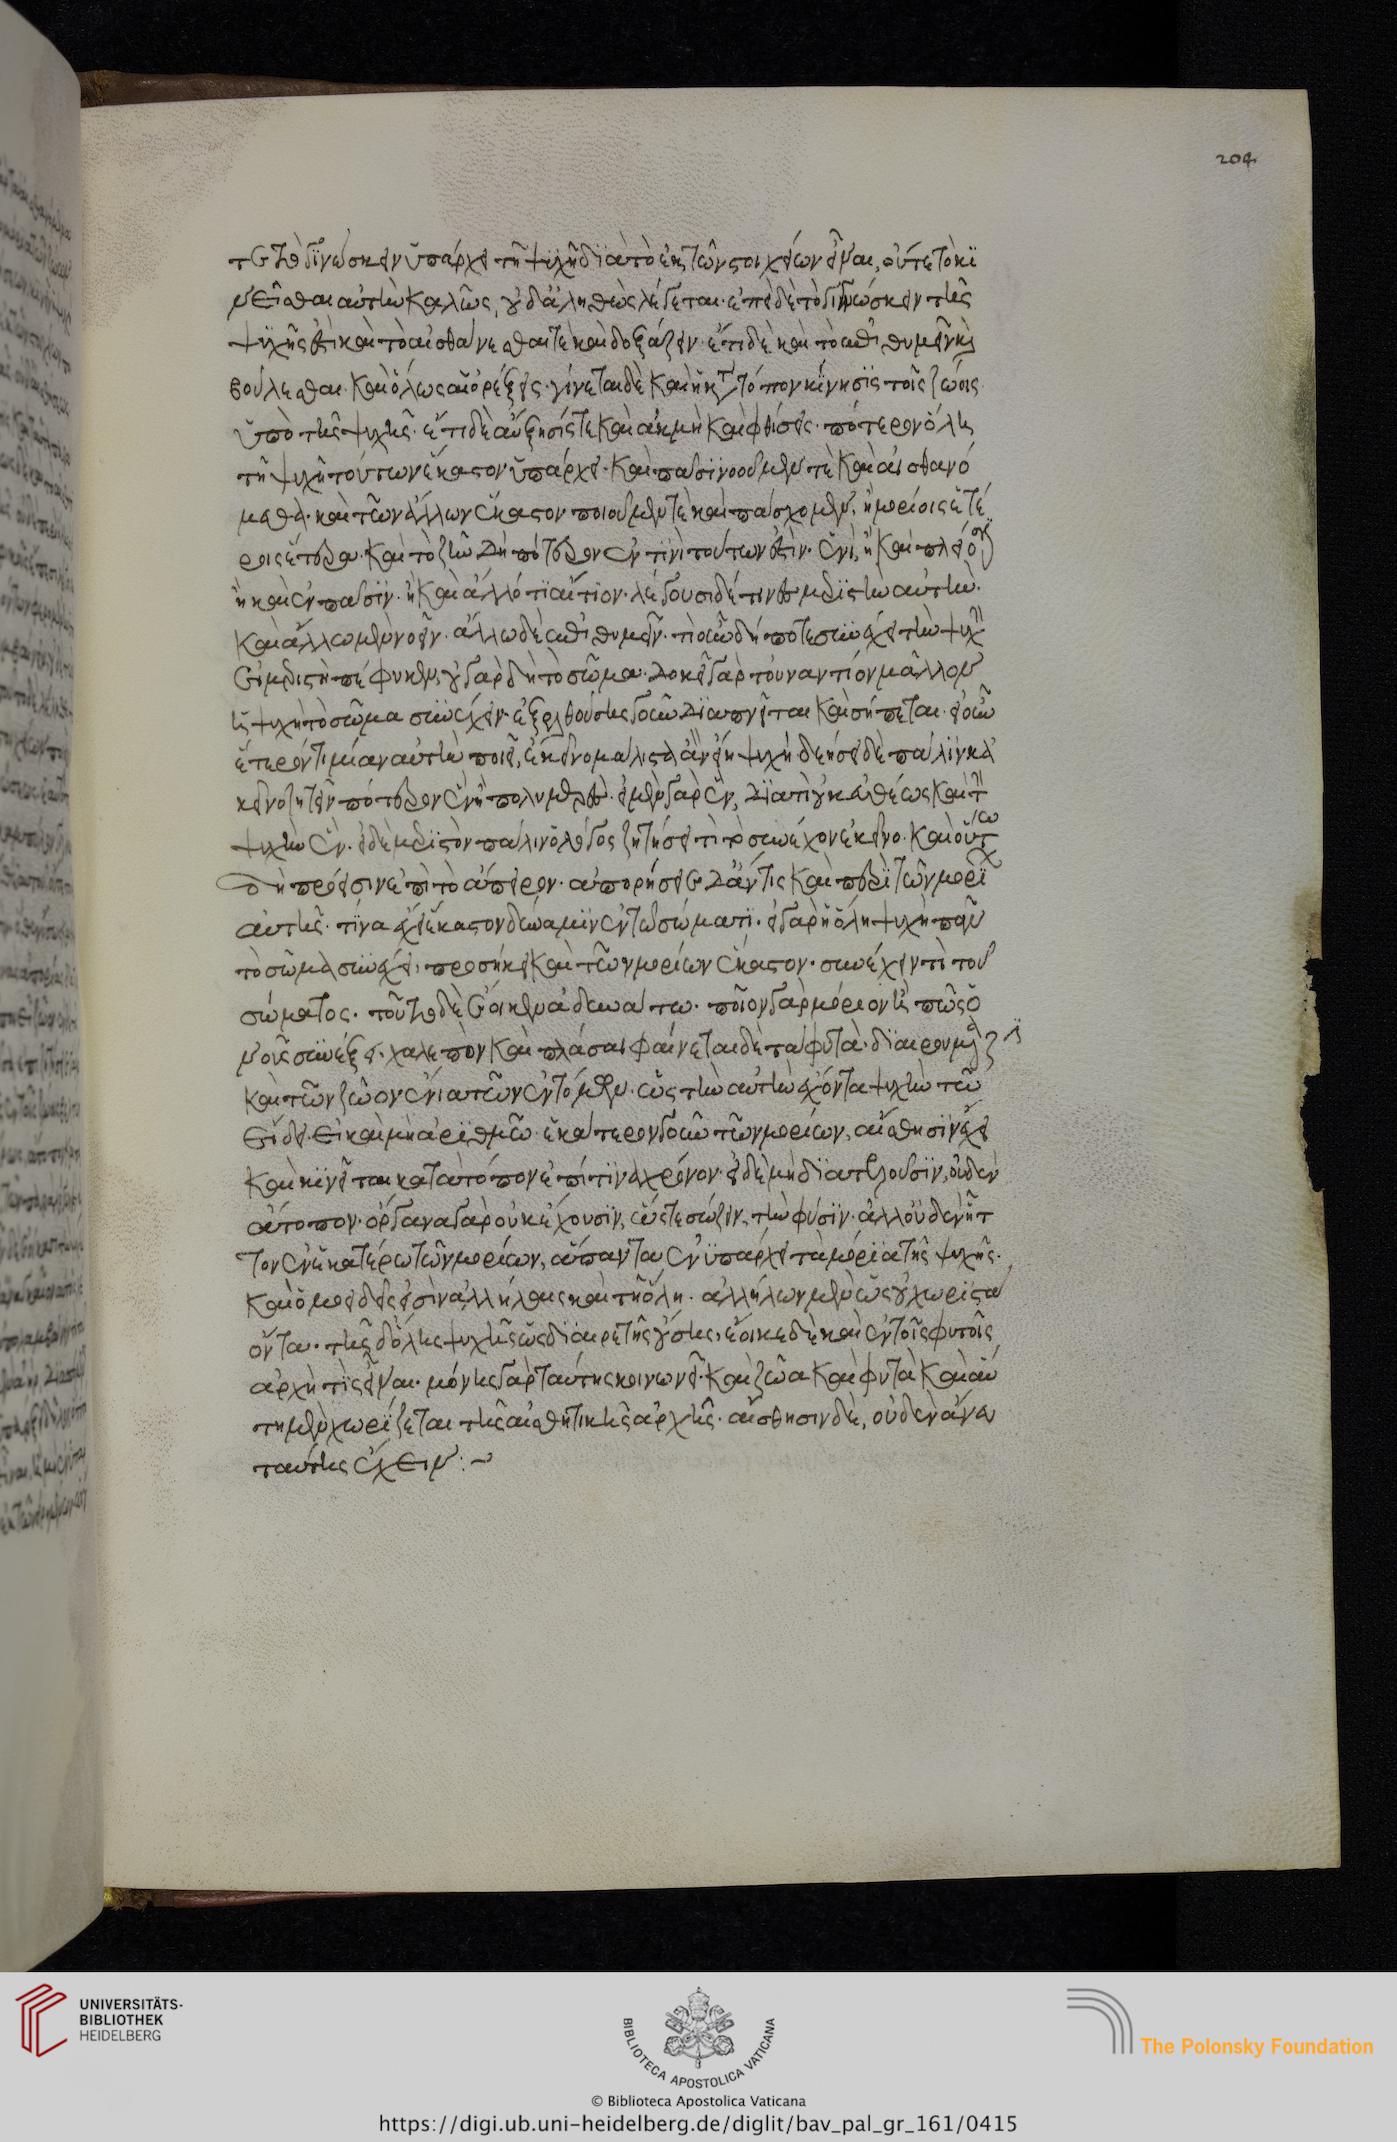 204
τε τὸ γινώσκειν ὑπάρχει τῇ ψυχῇ διὰ τὸ ἐκ τῶν στοιχείων εἶναι, οὔτε τὸ κι
νεῖσθαι αὐτὴν καλῶς, οὐδ' ἀληθῶς λέγεται· ἐπεὶ δὲ τὸ γινώσκειν τῆς
ψυχῆς ἐστὶ καὶ τὸ αἰσθάνεσθαί τε καὶ δοξάζειν· ἔτι δὲ καὶ τὸ ἐπιθυμεῖν καὶ
βούλεσθαι· καὶ ὅλως αἱ ὀρέξεις· γίνεται δὲ καὶ ἡ κατὰ τόπον κίνησις τοῖς ζώοις
ὑπὸ τῆς ψυχῆς· ἔτι δὲ αὔξησίς τε καὶ ἀκμὴ καὶ φθίσις· πότερον ὅλῃ
τῇ ψυχῇ τούτων ἕκαστον ὑπάρχει· καὶ πάσῃ νοοῦμέν τε καὶ αἰσθανό
μεθα· καὶ τῶν ἄλλων ἕκαστον ποιοῦμέν τε καὶ πάσχομεν, ἢ μορίοις ἑτέ
ροις ἕτερα· καὶ τὸ ζῆν δὴ πότερον ἔν τινι τούτων ἐστίν· ἑνὶ, ἢ καὶ πλείοσιν
ἢ καὶ ἐν πᾶσιν· ἢ καὶ ἄλλό τι αἴτιον· λέγουσι δέ τινες μεριστὴν αὐτήν·
καὶ ἄλλῳ μὲν νοεῖν· ἄλλῳ δὲ ἐπιθυμεῖν· τί οὖν δή ποτε συνέχει τὴν ψυχὴν
εἰ μεριστὴ πέφυκεν, οὐ γὰρ δὴ τὸ σῶμα· δοκεῖ γὰρ τοὐναντίον μᾶλλον
ἡ ψυχὴ τὸ σῶμα συνέχειν· ἐξελθούσης γοῦν διαπνεῖται καὶ σήπεται· εἰ οὖν
ἕτερόν τι μίαν αὐτὴν ποιεῖ, ἐκεῖνο μάλιστα ἂν εἴη ψυχή· δεήσει δὲ πάλιν κἀ
κεῖνο ζητεῖν πότερον ἓν ἢ πολυμερές· εἰ μὲν γὰρ ἓν, διατί οὐκ εὐθέως καὶ τὴν
ψυχὴν ἕν· εἰ δὲ μεριστὸν πάλιν ὁ λόγος ζητήσει τί τὸ συνέχον ἐκεῖνο· καὶ οὕτω
δὴ πρόεισιν ἐπὶ τὸ ἄπειρον· ἀπορήσειε δ' ἄν τις καὶ περὶ τῶν μορίων
αὐτῆς· τίνα ἔχει ἕκαστον δύναμιν ἐν τῷ σώματι· εἰ γὰρ ἡ ὅλη ψυχὴ πᾶν
τὸ σῶμα συνέχει, προσήκει καὶ τῶν μορίων ἕκαστον· συνέχειν τὶ τοῦ
σώματος· τοῦτο δὲ ἔοικεν ἀδυνάτω· ποῖον γὰρ μόριον ἢ πῶς ὁ
νοῦς συνέξει· χαλεπὸν καὶ πλάσαι φαίνεται δὲ τὰ φυτὰ διαιρούμενα ζῆν
καὶ τῶν ζώων ἔνια τῶν ἐντόμων· ὡς τὴν αὐτὴν ἔχοντα ψυχὴν τῷ
εἴδει· εἰ καὶ μὴ ἀριθμῷ· ἑκάτερον γοῦν τῶν μορίων, αἴσθησιν ἔχει
καὶ κινεῖται κατὰ τόπον ἐπί τινα χρόνον· εἰ δὲ μὴ διατελοῦσιν, οὐδὲν
ἄτοπον· ὄργανα γὰρ οὐκ ἔχουσιν, ὥστε σώζειν, τὴν φύσιν· ἀλλ' οὐδὲν ἧτ
τον ἐν ἑκατέρῳ τῶν μορίων, ἅπαντα ἐνυπάρχει τὰ μόρια τῆς ψυχῆς·
καὶ ὁμοειδεῖς εἰσὶν ἀλλήλαις καὶ τῇ ὅλῃ· ἀλλήλων μὲν ὡς οὐ χωριστὰ
ὄντα· τῆς δ' ὅλης ψυχῆς ὡς διαιρετῆς οὔσης, ἔοικε δὲ καὶ ἐν τοῖς φυτοῖς
ἀρχή τις εἶναι· μόνης γὰρ ταύτης κοινωνεῖ· καὶ ζῶα καὶ φυτὰ καὶ αὕ
τη μὲν χωρίζεται τῆς αἰσθητικῆς ἀρχῆς· αἴσθησιν δὲ, οὐδὲν ἄνευ
ταύτης ἔχειν:~
UNIVERSITÄTS-
BIBLIOTHEK
HEIDELBERG
BIBLIOTECA APOSTOLICA VATICANA
The Polonsky Foundation
© Biblioteca Apostolica Vaticana
https://digi.ub.uni-heidelberg.de/diglit/bav_pal_gr_161/0415